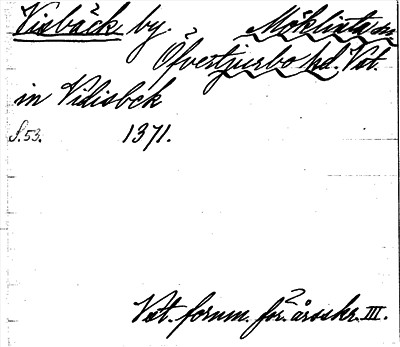 Visbäck by. Möklinta sn
Öfvertjurbo hd. Vst.
in Vidisbek
S. 53. 1371.
Vst. fornm. för. årsskr. III.